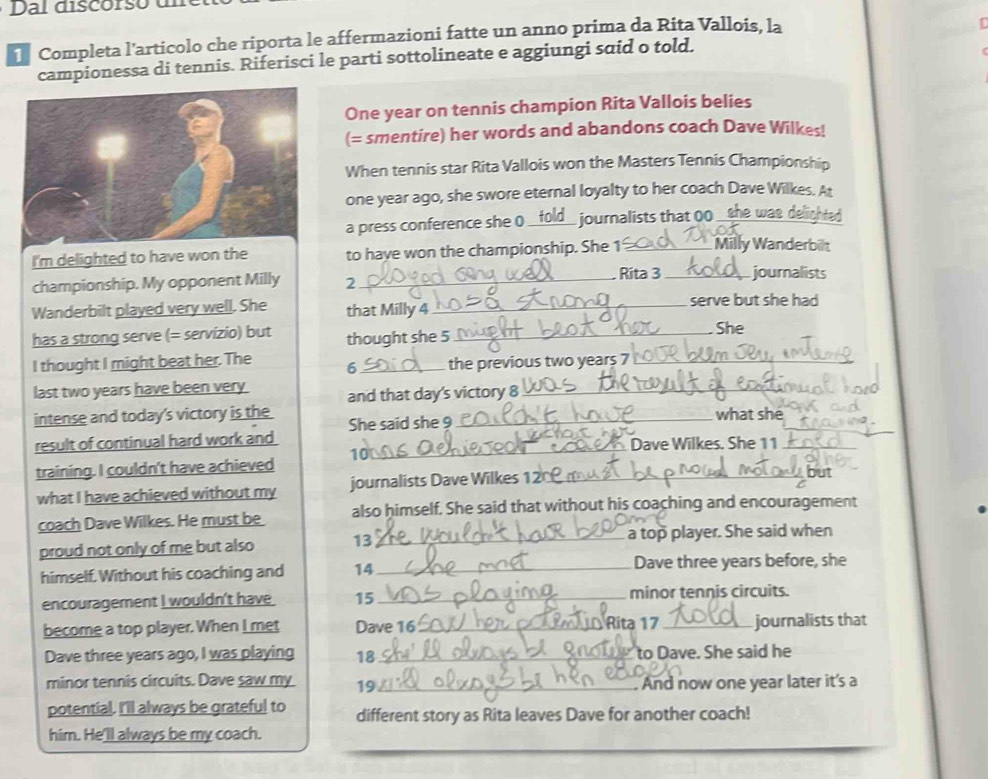 Dal discorso
1 Completa l'articolo che riporta le affermazioni fatte un anno prima da Rita Vallois, la
campionessa di tennis. Riferisci le parti sottolineate e aggiungi said o told.
I'm delighted to have won the
championship. My opponent Milly
Wanderbilt played very well. She
has a strong serve (= servizio) but
I thought I might beat her. The
last two years have been very
intense and today's victory is the
result of continual hard work and
training. I couldn't have achieved
what I have achieved without my
coach Dave Wilkes. He must be
proud not only of me but also
himself. Without his coaching and
encouragement I wouldn't have
become a top player. When I met
Dave three years ago, I was playing
minor tennis circuits. Dave saw my
potential. I'll always be grateful to
him. He'll always be my coach.
One year on tennis champion Rita Vallois belies
(= smentire) her words and abandons coach Dave Wilkes!
When tennis star Rita Vallois won the Masters Tennis Championship
one year ago, she swore eternal loyalty to her coach Dave Wilkes. At
a press conference she 0 told journalists that 00 she was delighted
to have won the championship. She 1 said that Milly Wanderbilt
2 played very well. Rita 3 told journalists
that Milly 4 has a strong serve but she had
thought she 5 might beat her. She
6 said the previous two years 7 have been very intense
and that day's victory 8 was the result of continual hard
work and
She said she 9 couldn't have what she training.
10 has achieved without her coach Dave Wilkes. She 11 told
journalists Dave Wilkes 12 he must be proud not only of her but
also himself. She said that without his coaching and encouragement
13 she wouldn't have become a top player. She said when
14 she met Dave three years before, she
15 was playing minor tennis circuits.
Dave 16 saw her potential Rita 17 told journalists that
18 she'll always be grateful to Dave. She said he
19 will always be her coach. And now one year later it's a
different story as Rita leaves Dave for another coach!